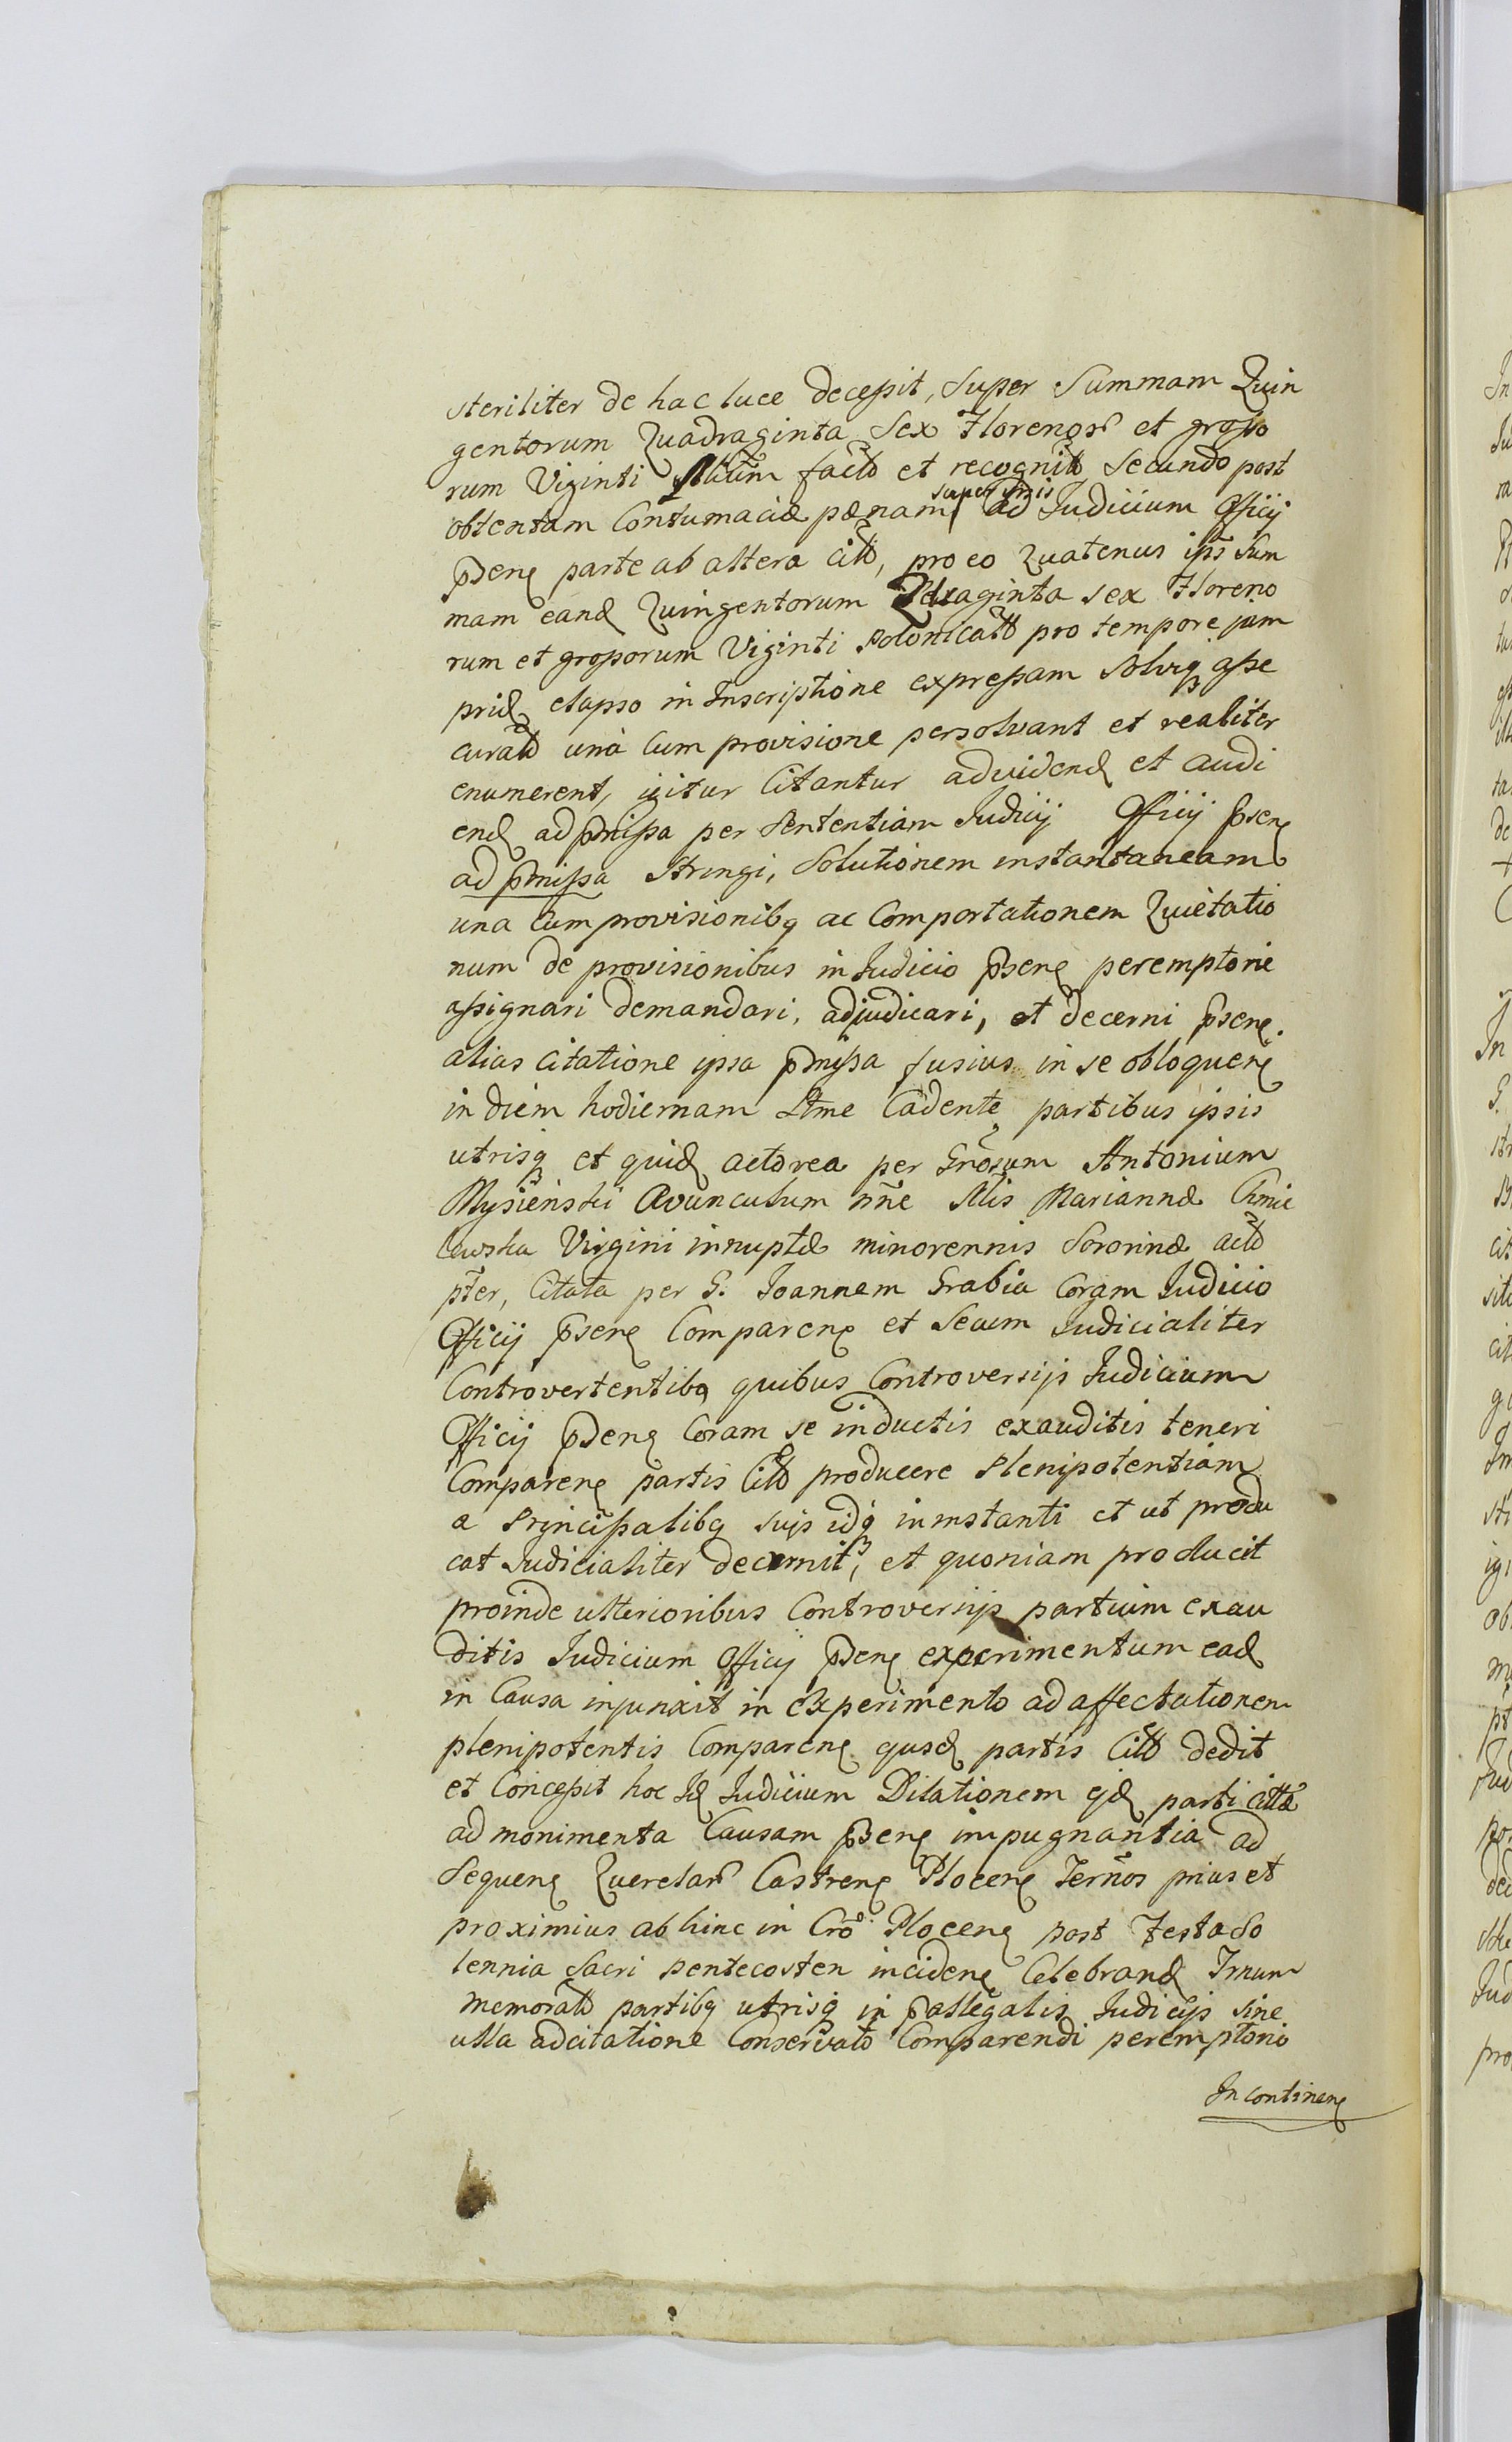 steriliter de hac luce decessit, super Summam Quin
gentorum Quadraginta Sex Florenor et grosso
rum Viginti factt et recognitt Secundo post
obtentam Contumaciæ pænam super ad Judicium Officÿ
pseng parte ab altera citt, pro eo Quatenus ips Sum
mam eand Quingentorum Qdraginta sex Floreno
rum et grossorum Viginti Polonicatt pro tempore jam
prid elapso in Inscriptione expressam Solviq asse
curatt unà Cum provisione persolvant et realiter
enumerent, igitur Citantur ad vidend et audi
end ad pmissa per Sententiam Judicÿ Officÿ pseng
ad pmissa Stringi, Solutionem instantaneam
una Cum provisionibq ac Comportationem Quietatio
num de provisionibus in Judicio pseng peremptorie
assignari demandari, adjudicari, et decerni pseng.
alias Citatione ipsa pmissa fusius in se obloqueng
in diem hodiernam Ltme Cadente partibus ipsis
utrisq et quid actorea per Gnosum Antonium
Mysienski Avunculum nne Mariannæ Chmie
lewska Virgini innuptæ minorennis Sororinæ actt
pter, Citata per G. Joannem Grabia Coram Judicio
Officÿ pseng Compareng et Secum Judicialiter
Controvertentibq quibus Controversÿs Judicium
Officÿ pseng Coram se inductis exauditis teneri
Compareng partis Citt producere Plenipotentiam
a Principalibq suÿs idq in instanti et ut produ
cat Judicialiter decernit, et quoniam producit
proinde ulterioribus Controversÿs partium exau
ditis Judicium Officÿ pseng experimentum ead
in Causa injunxit in experimento ad affectationem
plenipotentis Compareng ejusd partis Citt dedit
et Concessit hoc Id Judicium Dilationem ejd parti cittæ
ad monimenta Causam pseng impugnantia ad
Sequeng Querelar Castreng Ploceng Termos prius et
proximius ab hinc in Cro Ploceng post Festa So
lennia Sacri Pentecosten incideng Celebrand Trnum
memoratt partibq utrisq in pallegatis Judicÿs sine
ulla adcitatione Conservato Comparendi peremptorio
In contineng